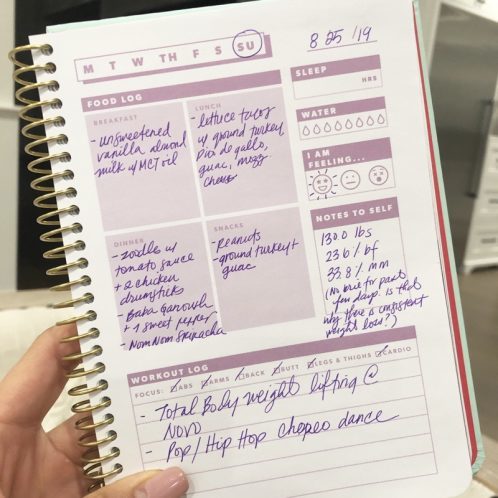 M T W TH F S SU
8/25/19
FOOD LOG
BREAKFAST
- unsweetened
vanilla almond
milk w/ MCT oil
LUNCH
- lettuce tacos
w/ ground turkey
pico de gallo,
guac, mozz
cheese
DINNER
- zoodles w/
tomato sauce
+ 2 chicken
drumsticks
- Baba Ganoush
+ 1 sweet pepper
- Nom Nom sriracha
SNACKS
- Peanuts
- ground turkey +
guac
SLEEP
HRS
WATER
I AM
FEELING...
NOTES TO SELF
130.0 lbs
23.6% bf
33.8% mm
(No brie for past
few days. is that
why there is consistent
weight loss?)
WORKOUT LOG
FOCUS: ABS ARMS BACK BUTT LEGS & THIGHS CARDIO
- Total Body weight lifting @
NOVO
- Pop/Hip Hop choreo dance